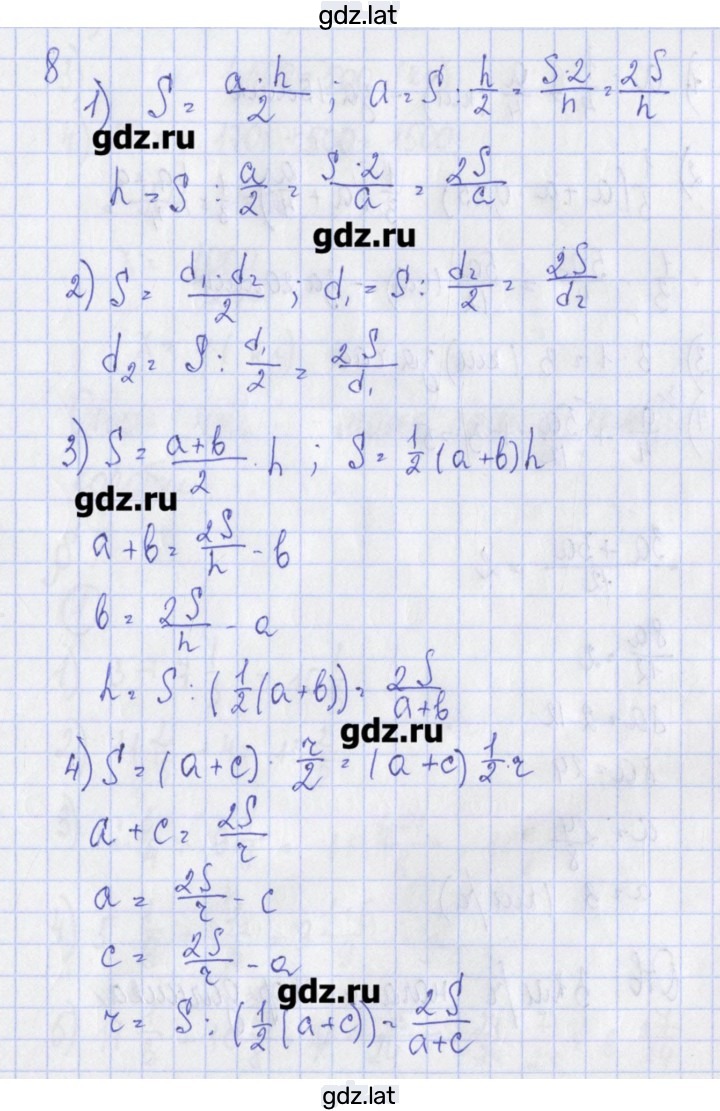 gdz.lat
8
1) S = a·h/2 ; a = S : h/2 = S·2/h = 2S/h
gdz.ru
h = S : a/2 = S·2/a = 2S/a
gdz.ru
2) S = d₁·d₂/2 ; d₁ = S : d₂/2 = 2S/d₂
d₂ = S : d₁/2 = 2S/d₁
3) S = a+b/2 · h ; S = 1/2 (a+b)h
gdz.ru
a+b = 2S/h - b
b = 2S/h - a
h = S : (1/2(a+b)) = 2S/a+b
gdz.ru
4) S = (a+c) · r/2 = (a+c) 1/2·r
a+c = 2S/r
a = 2S/r - c
c = 2S/r - a
gdz.ru
r = S : (1/2(a+c)) = 2S/a+c
gdz.lat